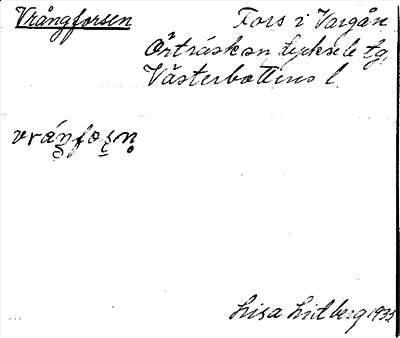 Vrångforsen
Fors i Vargån
Örträsk sn Lycksele tg,
Västerbottens l.
vráŋfoṣṇ
Lisa Lidberg 1935